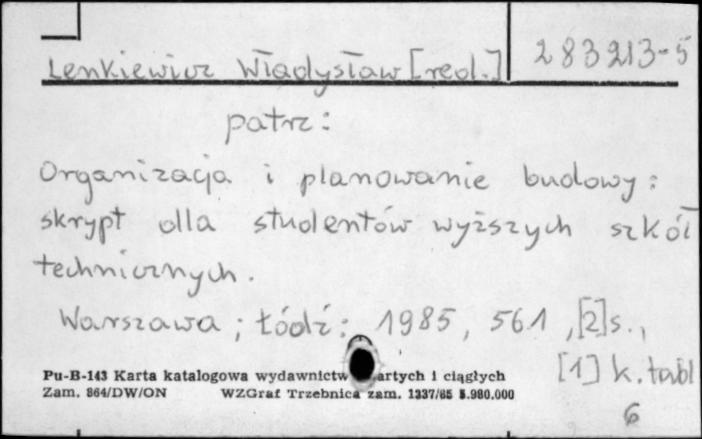 Lenkiewicz Władysław [red.] 283213-5
patrz:
Organizacja i planowanie budowy:
skrypt dla studentów wyższych szkół
technicznych.
Warszawa; Łódź: 1985, 561, [2]s.,
[1] k. tabl
Pu-B-143 Karta katalogowa wydawnictw artych i ciągłych
Zam. 864/DW/ON WZGraf Trzebnica zam. 1337/85 5.980.000
6